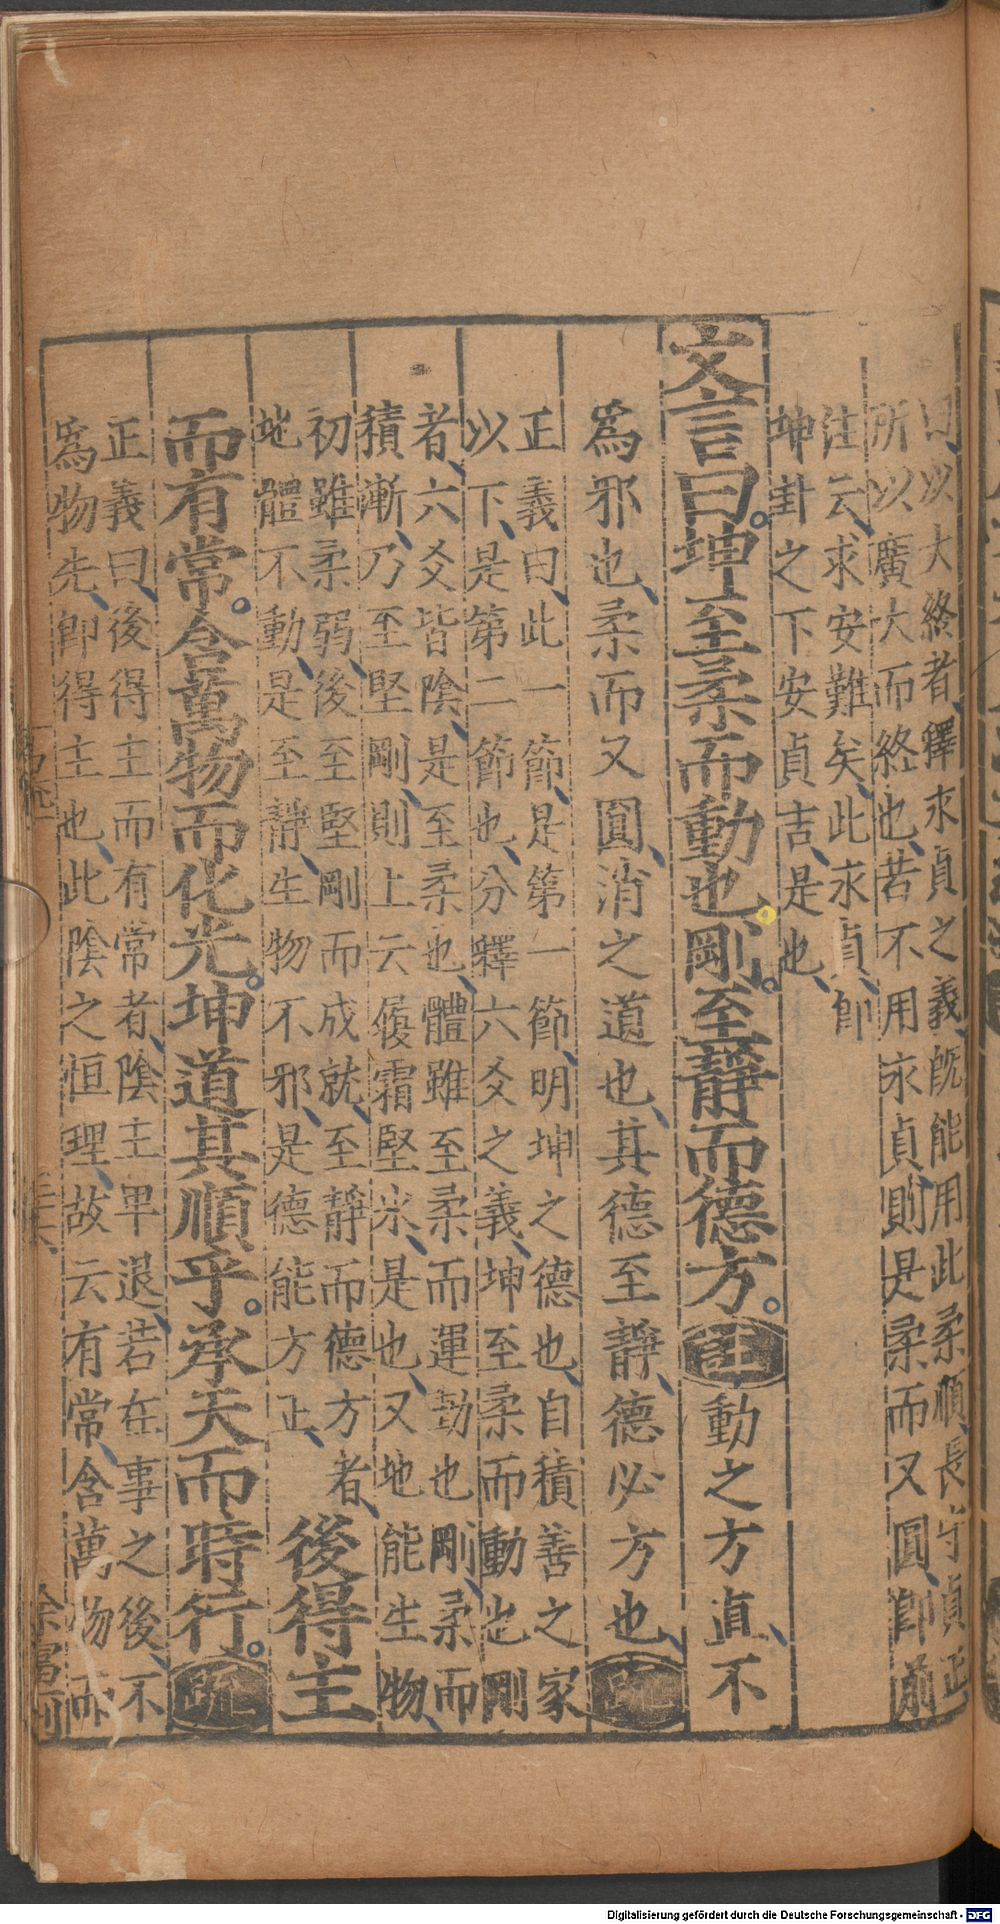 曰、以大終者、釋永貞之義、旣能用此柔順、長守貞正
所以廣大而終也、若不用永貞、則是柔而又圓、卽前
注云、求安難矣、此永貞、卽
坤卦之下安貞吉、是也、
文言曰。坤至柔而動也。剛。至靜而德方。注動之方直、不
爲邪也、柔而又圓、消之道也、其德至靜、德必方也、疏
正義曰、此一節、是第一節、明坤之德也、自積善之家
以下、是第二節也、分釋六爻之義、坤至柔而動也剛
者、六爻皆陰、是至柔也、體雖至柔而運動也剛、柔而
積漸、乃至堅剛、則上云履霜堅冰、是也、又地能生物、
初雖柔弱、後至堅剛而成就、至靜而德方者、
地體不動、是至靜、生物不邪、是德能方正、
後得主
而有常。含萬物而化光。坤道其順乎。承天而時行。疏
正義曰、後得主而有常者、陰主卑退、若在事之後、不
爲物先、卽得主也、此陰之恒理、故云有常、含萬物而
Digitalisierung gefördert durch die Deutsche Forschungsgemeinschaft - DFG